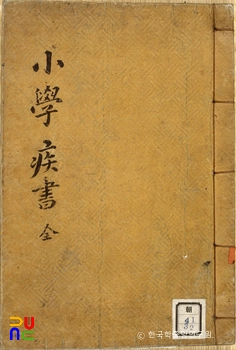 小學疾書 全
朝
© 한국학중앙연구원